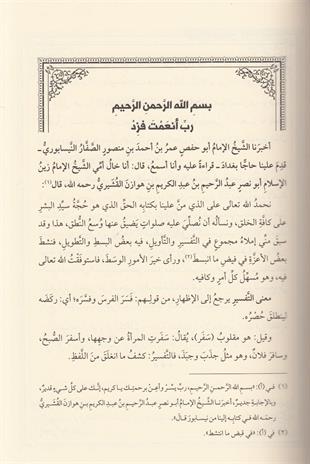 بسم الله الرَّحمن الرَّحيم
ربِّ أَنعَمْتَ فَزِدْ
أخبرَنا الشَّيخُ الإمامُ أبو حفصٍ عمرُ بنُ أحمدَ بنِ منصورٍ الصَّفَّارُ النَّيسابوريُّ-
قدِمَ علينا حاجًّا بغدادَ - قراءةً عليه وأنا أسمعُ، قال: أنا خالُ أمِّي الشَّيخُ الإمامُ زينُ
الإسلامِ أبو نصرٍ عبدُ الرَّحيمِ بنُ عبدِ الكريمِ بنِ هوازنَ القُشَيريُّ رحمه الله، قال(١):
نحمدُ الله تعالى الذي منَّ علينا بكتابِه الحقِّ الذي هو حُجَّةُ سيِّدِ البشرِ
على كافَّةِ الخلق، ونسألُه أن يُصلِّيَ عليه صلواتٍ يَضيقُ عنها وُسعُ النُّطق، هذا وقد
سبق منِّي إملاءُ مجموعٍ في التَّفسيرِ والتَّأويلِ، فيه بعضُ البسطِ والتَّطويلِ، فنشطَ
بعضُ الأعزَّةِ في قبضِ ما انبسط(٢)، ورأى خيرَ الأمورِ الوسَطَ، فاستوفَقْتُ الله تعالى
فيه، وهو مُسهِّلُ كلِّ أمرٍ وكافيه.
معنى التَّفسيرِ يرجعُ إلى الإظهارِ، من قولِهم: فَسَرَ الفرسَ وفسَّرَه؛ أي: ركضَه
لينطلقَ حُصْرُه.
وقيل: هو مقلوبُ (سَفَر)، يُقالُ: سَفَرتِ المرأةُ عن وجهِها، وأسفرَ الصُّبحُ،
وسافرَ فلانٌ، وهو مثلُ جذَبَ وجبَذَ، فالتَّفسيرُ: كشفُ ما انغلقَ منَ اللَّفظِ.
(١) في (أ): «بسم الله الرَّحمن الرَّحيم، ربِّ يسِّرْ وأعِنْ برحمتِك يا كريم، إنَّك على كلِّ شيءٍ قديرٌ،
وبالإجابةِ جديرٌ، أخبرَنا الشَّيخُ الإمامُ أبو نصرٍ عبدُ الرَّحيمِ بنُ عبدِ الكريمِ بنِ هوازنَ القُشَيريُّ
رحمَه الله في كتابِه إلينا من نيسابورَ قال».
(٢) في (أ): «في قبض ما انتشط».
٥